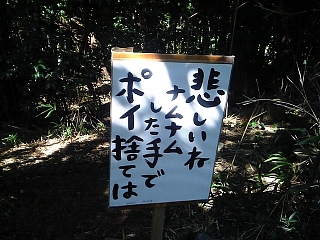 悲しいね
ナムナム
した手で
ポイ捨ては